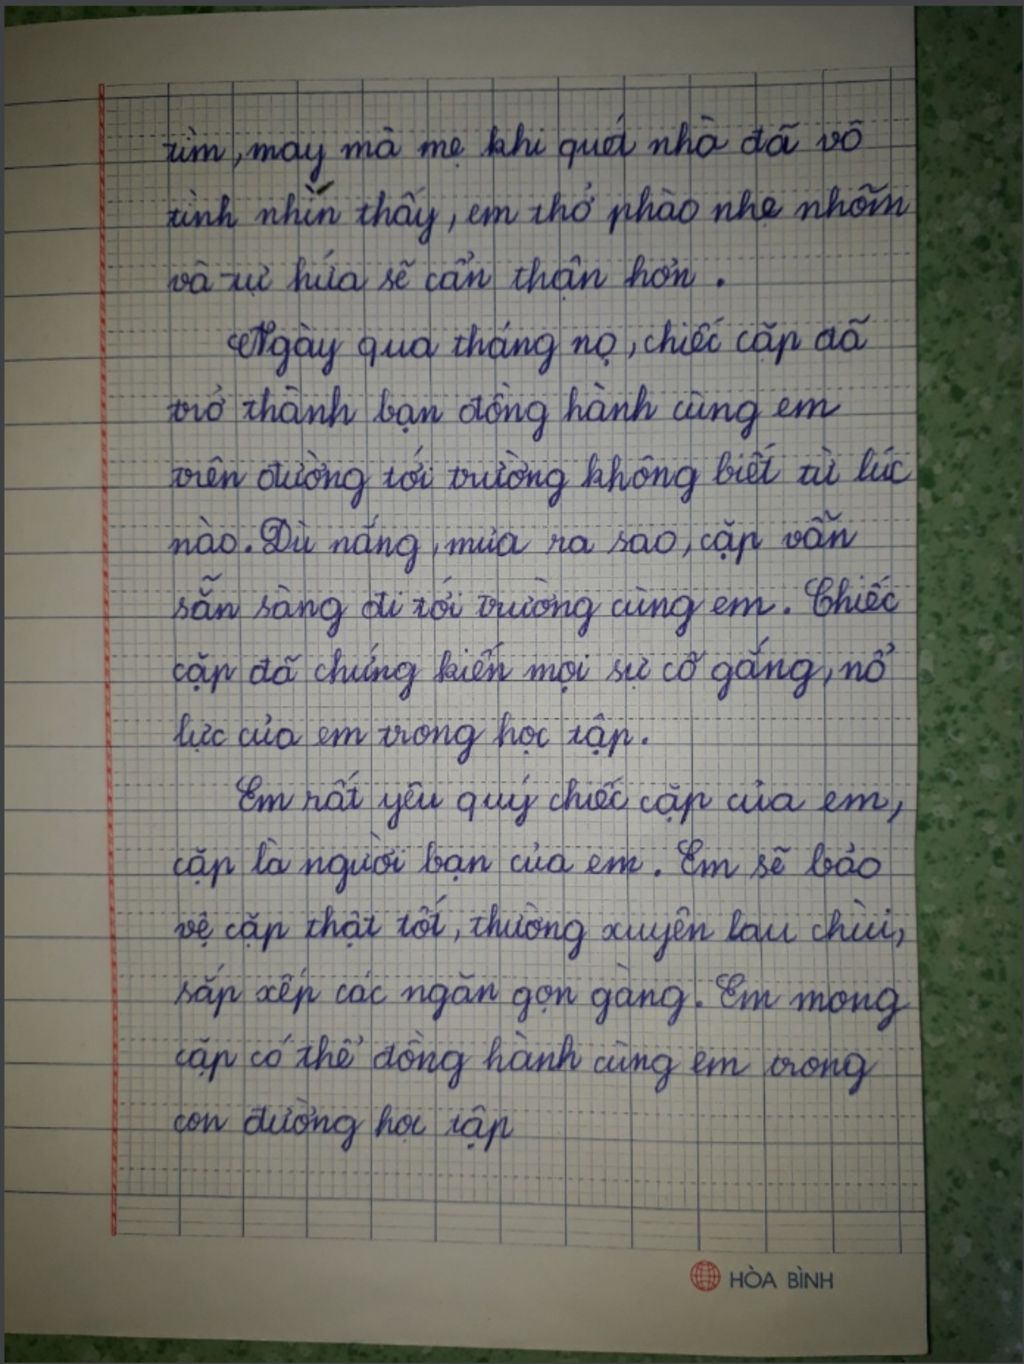 tìm, may mà mẹ khi quét nhà đã vô
tình nhìn thấy, em thở phào nhẹ nhõm
và tự hứa sẽ cẩn thận hơn.
Ngày qua tháng nọ, chiếc cặp đã
trở thành bạn đồng hành cùng em
trên đường tới trường không biết từ lúc
nào. Dù nắng, mưa ra sao, cặp vẫn
sẵn sàng đi tới trường cùng em. Chiếc
cặp đã chứng kiến mọi sự cố gắng, nổ
lực của em trong học tập.
Em rất yêu quý chiếc cặp của em,
cặp là người bạn của em. Em sẽ bảo
vệ cặp thật tốt, thường xuyên lau chùi,
sắp xếp các ngăn gọn gàng. Em mong
cặp có thể đồng hành cùng em trong
con đường học tập
HÒA BÌNH